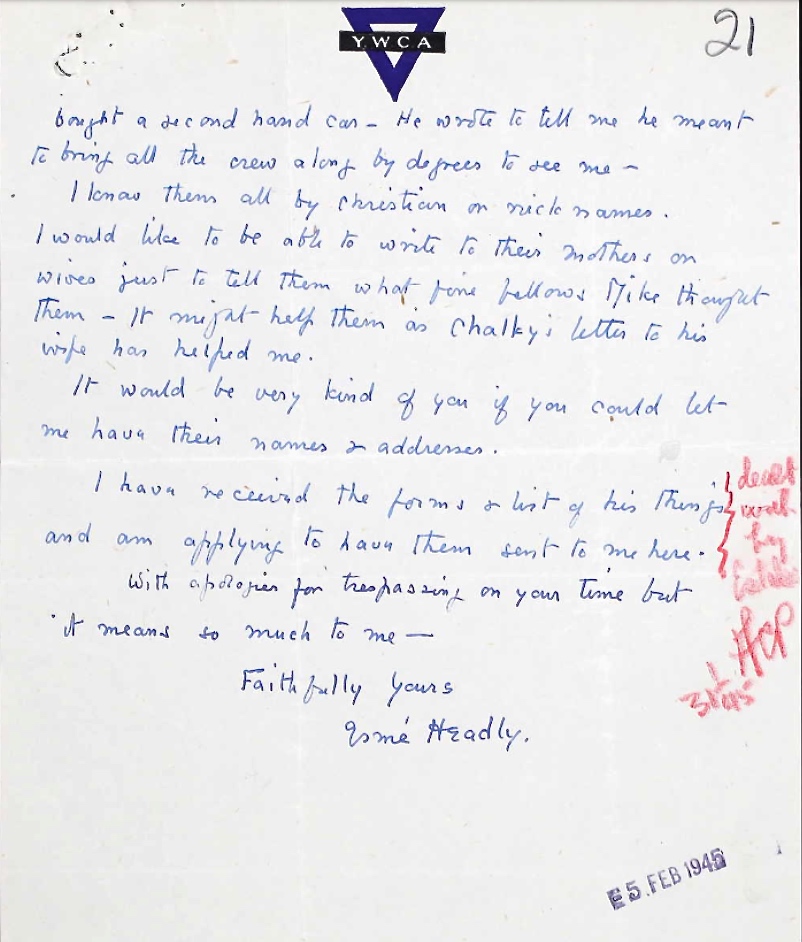 YWCA
21
bought a second hand car – He wrote to tell me he meant
to bring all the crew along by degrees to see me –
I know them all by Christian or nick names.
I would like to be able to write to their mothers or
wives just to tell them what fine fellows Mike thought
them – It might help them as Chalky's letter to his
wife has helped me.
It would be very kind of you if you could let
me have their names & addresses.
I have received the forms & list of his things
and am applying to have them sent to me here.
With apologies for trespassing on your time but
it means so much to me —
Faithfully Yours
Esmé Headly.
dealt
with
by
HCP
31/1/45
5. FEB 1945